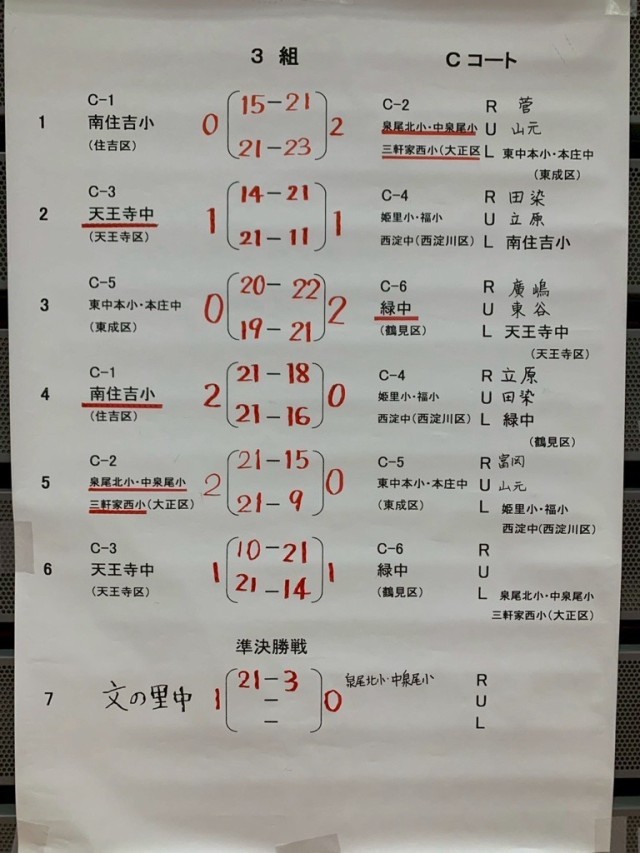 3 組 Cコート
C-1 15-21 C-2 R 菅
1 南住吉小 0 2 泉尾北小・中泉尾小 U 山元
(住吉区) 21-23 三軒家西小(大正区 L 東中本小・本庄中
(東成区)
C-3 14-21 C-4 R 田染
2 天王寺中 1 1 姫里小・福小 U 立原
(天王寺区) 21-11 西淀中(西淀川区) L 南住吉小
C-5 20-22 C-6 R 廣嶋
3 東中本小・本庄中 0 2 緑中 U 東谷
(東成区) 19-21 (鶴見区) L 天王寺中
(天王寺区)
C-1 21-18 C-4 R 立原
4 南住吉小 2 0 姫里小・福小 U 田染
(住吉区) 21-16 西淀中(西淀川区) L 緑中
(鶴見区)
C-2 21-15 C-5 R 富岡
5 泉尾北小・中泉尾小 2 0 東中本小・本庄中 U 山元
三軒家西小(大正区) 21-9 (東成区) L 姫里小・福小
西淀中(西淀川区)
C-3 10-21 C-6 R
6 天王寺中 1 1 緑中 U
(天王寺区) 21-14 (鶴見区) L 泉尾北小・中泉尾小
三軒家西小(大正区)
準決勝戦
21-3 泉尾北小・中泉尾小 R
7 文の里中 1 - 0 U
- L